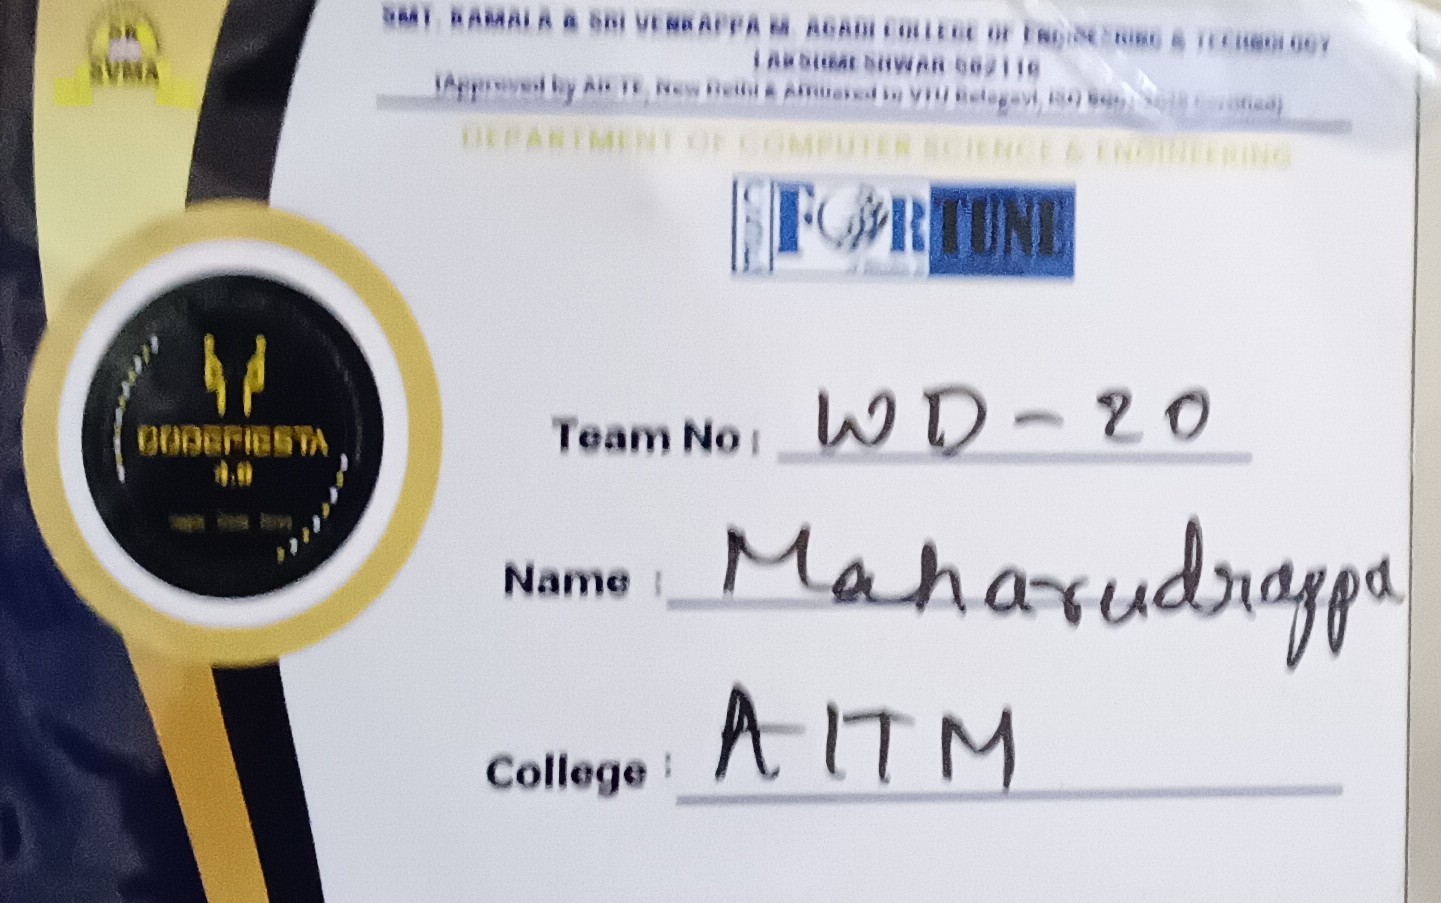 SK
SVMA
SMT. KAMALA & SRI VENKAPPA M. AGADI COLLEGE OF ENGINEERING & TECHNOLOGY
LAKSHMESHWAR-582116
(Approved by AICTE, New Delhi & Affiliated to VTU Belagavi, ISO Certified)
DEPARTMENT OF COMPUTER SCIENCE & ENGINEERING
CODE FORTUNE
CODEFIESTA
Team No: WD-20
Name : Maharudrappa
College : AITM